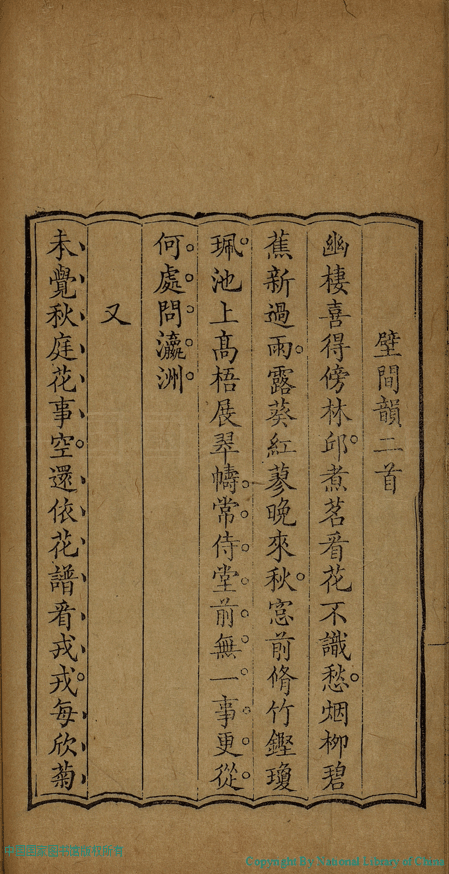 壁間韻二首
幽棲喜得傍林邱煮茗看花不識愁烟柳碧
蕉新過雨露葵紅蓼晚來秋窓前脩竹鏗瓊
珮池上高梧展翠幬常侍堂前無一事更從
何處問瀛洲
又
未覺秋庭花事空還依花譜看戎戎每欣菊
Copyright By National Library of China